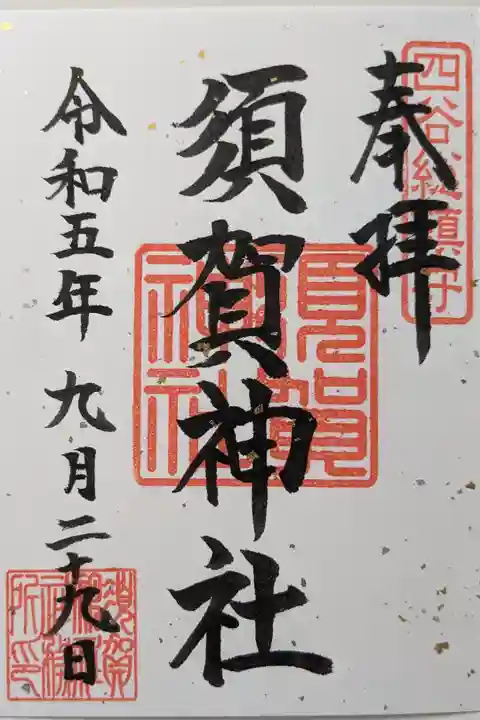 四谷総鎮守
奉拝
須賀神社
須賀神社
令和五年九月二十九日